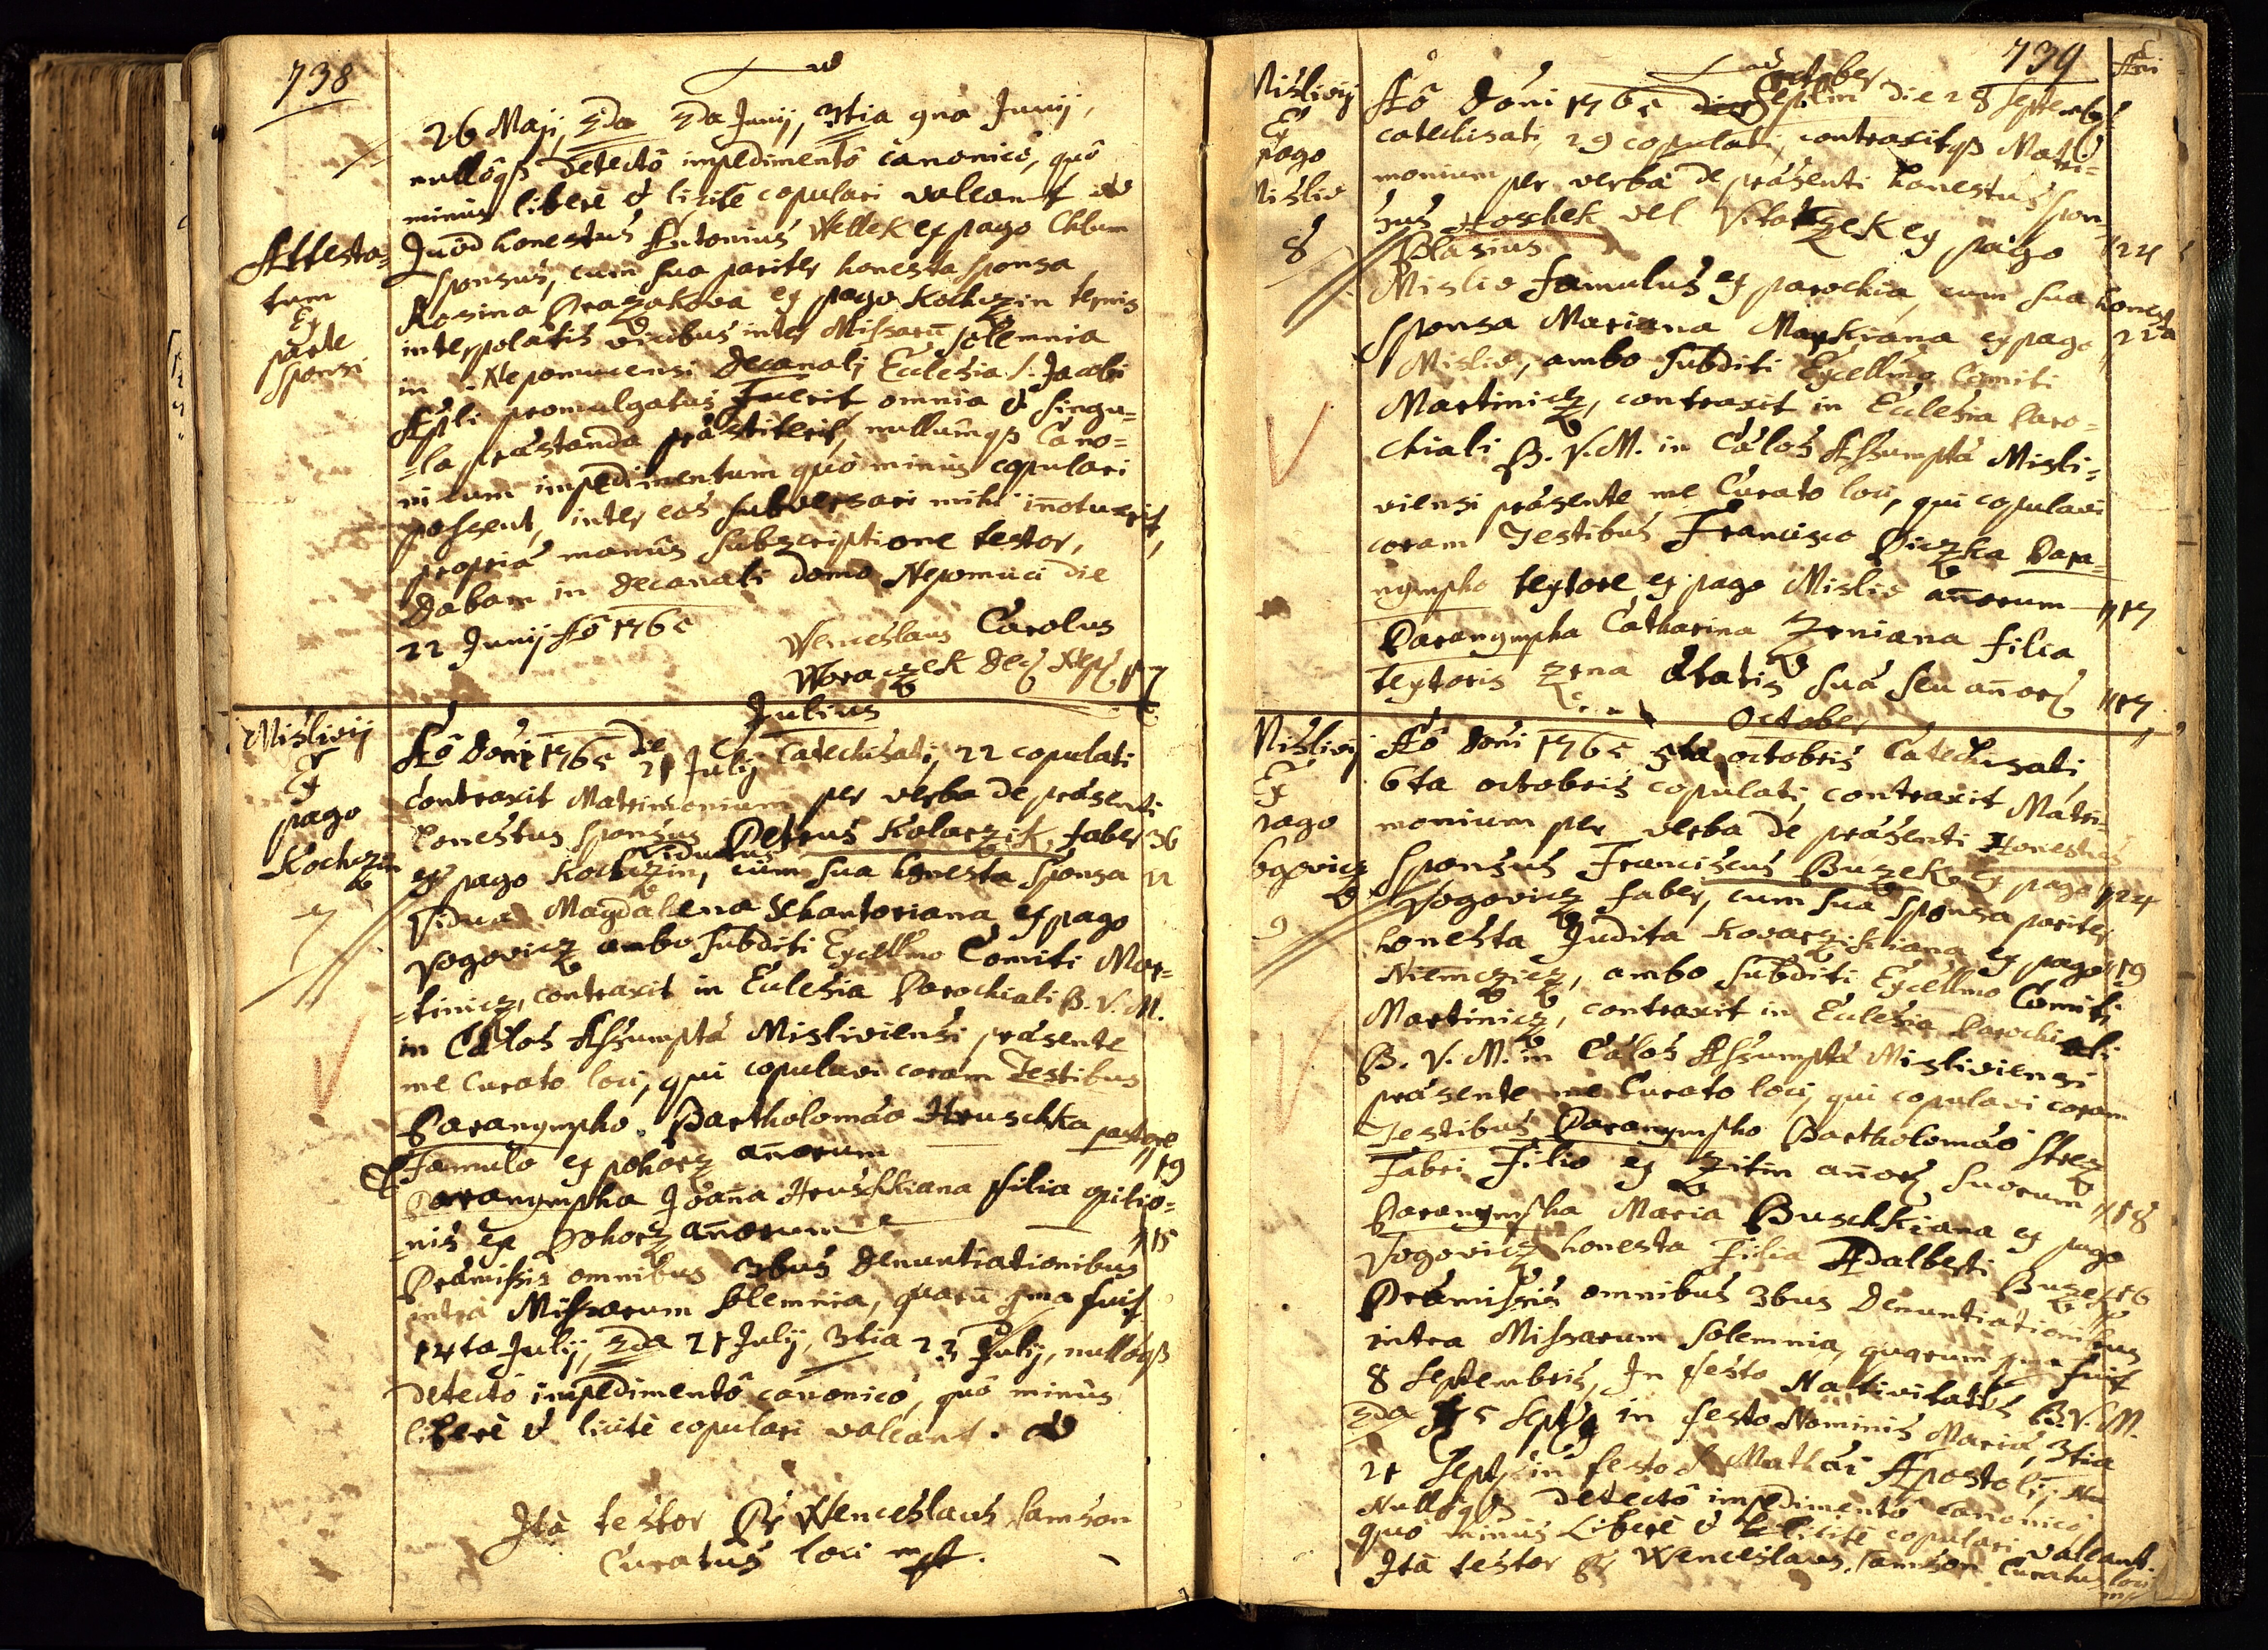 738
26 Maji, 2da 2da Junij, 3tia 9na Junij,
nullôqß detectô impedimentô canonicô, quô
minus liberè & licitè copulari valeant
Attesta=
tum
Ex
parte
sponsi
Quod honestus Antonius Wellek ex pago Chlum
sponsus, cum sua pariter honesta sponsa
Rosina Drazakova ex pago Kochczin ternis
interpolatis vicibus inter Missarũ solemnia
in Nepomucensi Decanali Ecclesia S. Jacobi
Apli promulgatus fuerit omnia & singu=
=la præstanda præstiterit, nullumqß Cano=
nicum impedimentum quò minùs copulari
possent, inter eos subversari mihi iñotuerit,
propriâ manûs subscriptione testor,
Dabam in decanali domo Nepomuci die
22 Junij Aô 1765
Wenceslaus Carolus
Woraczek Dec Nep
Julius
Mislivij
Ex
pago
Kochczin
7
Aô Doñi 1765 die 21 Julij Catechisati, 22 copulati
contraxit Matrimonium per verba de præsenti
honestus sponsus Petrus Kolarzik, faber 36
Viduus
ex pago Kochczin, cum sua honesta sponsa
Vidua Magdalena Schantoriana ex pago
Vogovicz ambo subditi Excellmo Comiti Mar=
=tinicz, contraxit in Ecclesia Parochiali B. V. M.
in Cælos Assumptæ Misliviensi præsente
me Curato loci, qui copulavi coram Testibus
Paranympho Bartholomæo Hruschka pastore
Famulo ex pohorz añorum 19
Paranympha Joaña Hruschkiana filia opilio=
=nis ex Pohorz añorum 15
Præmissis omnibus 3bus denuntiationibus
intra Missarum solemnia, quarũ 1ma fuit
14ta Julij, 2da 21 Julij, 3tia 23 Julij, nullôqß
detectô impedimentô canonicô, quô minùs
liberè & licitè copulari valeant.
Ità testor Pr Wenceslaus Samson
Curatus loci mp.
739
Añi
October
Mislivij
Ex
pago
Mislio
8
Aô Doñi 1765 die 28 Septembr
catechisati, 29 copulati, contraxitqß Matri=
monium per verba de præsenti honestus spon
sus Hoschek vel Vitaczek ex pago 24
Blasius
Mislio famulus ex parochia, cum sua honest
sponsa Mariana Marskiana ex pago 22
Mislio, ambo subditi Excellmo Comiti
Martinicz, contraxit in Ecclesia Paro=
chiali B. V. M. in Cælos Assumptæ Misli=
viensi præsente me Curato loci, qui copulavi
coram Testibus Francisco Diczka Para=
nympho textore ex pago Mislio añorum 17
Paranympha Catharina Zrniana filia
textoris Zrna ætatis suæ seu añor 17
October
Mislivij
Ex
pago
Vogovicz
9
Aô Doñi 1765 5ta octobris Catechisati
6ta octobris copulati, contraxit Matri=
monium per verba de præsenti Honestus
sponsus Franciscus Buzek ex pago 24
Vogovicz faber, cum sua sponsa pariter
honesta Judita Kovarzikiana ex pago 19
Niemczicz, ambo subditi Excellmo Comiti
Martinicz, contraxit in Ecclesia Parochiali
B. V. M. in Cælos Assumptæ Misliviensi
præsente me Curato loci, qui copulavi coram
Testibus Paranympho Bartholomæo Strez
Fabri filio ex Zitin añor suorum 18
Paranympha Maria Buschkiana ex pago
Vogovicz honesta filia Adalberti Buzek 16
Præmissis omnibus 3bus Denuntiationibus
intra Missarum solemnia, quarum 1ma fuit
8 Septembris, In festo Nativitatis B. V. M.
2da 15 Sept in festo Nominis Mariæ, 3tia
21 Sept in festo S. Mathæi Apostoli,
Nullôqß detectô impedimentô canonicô
quò minùs Liberè & licitè copulari valeant.
Ità testor Pr Wenceslaus Samson Curatus loci
mp